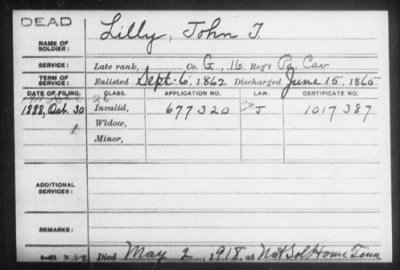 DEAD
NAME OF SOLDIER: Lilly, John T.
SERVICE: Late rank, Co. G, 16 Reg't Pa Cav
TERM OF SERVICE: Enlisted Sept. 6, 1862 Discharged June 15, 1865
DATE OF FILING. CLASS. APPLICATION NO. LAW. CERTIFICATE NO.
1888, Oct. 30 Invalid, 677320 J 1017387
Widow,
Minor,
ADDITIONAL SERVICES:
REMARKS:
Died May 2, 1918, at Nat Sol Home Tenn